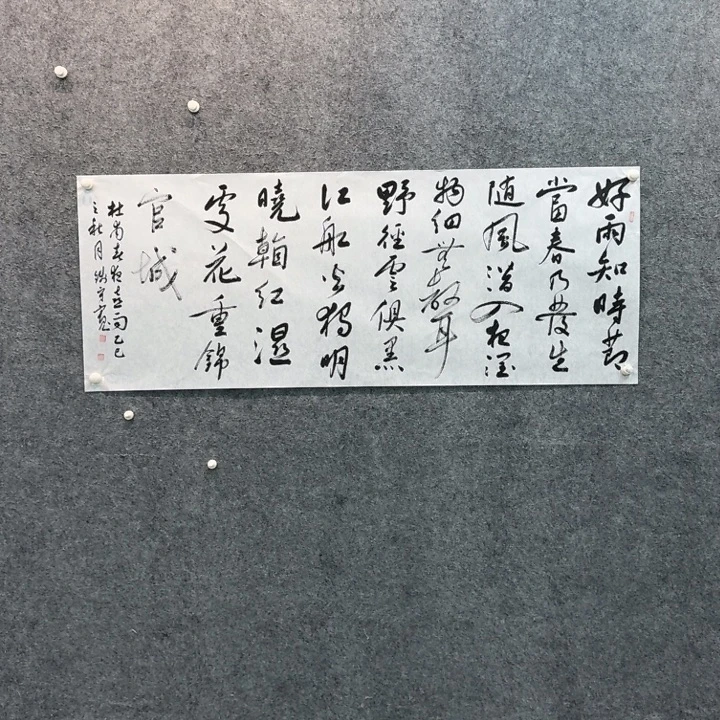 好雨知時節
當春乃發生
随風潛入夜潤
物細無聲
野徑雲俱黑
江船火獨明
曉看紅濕
處花重錦
官城
杜甫春夜喜雨乙巳
之秋月